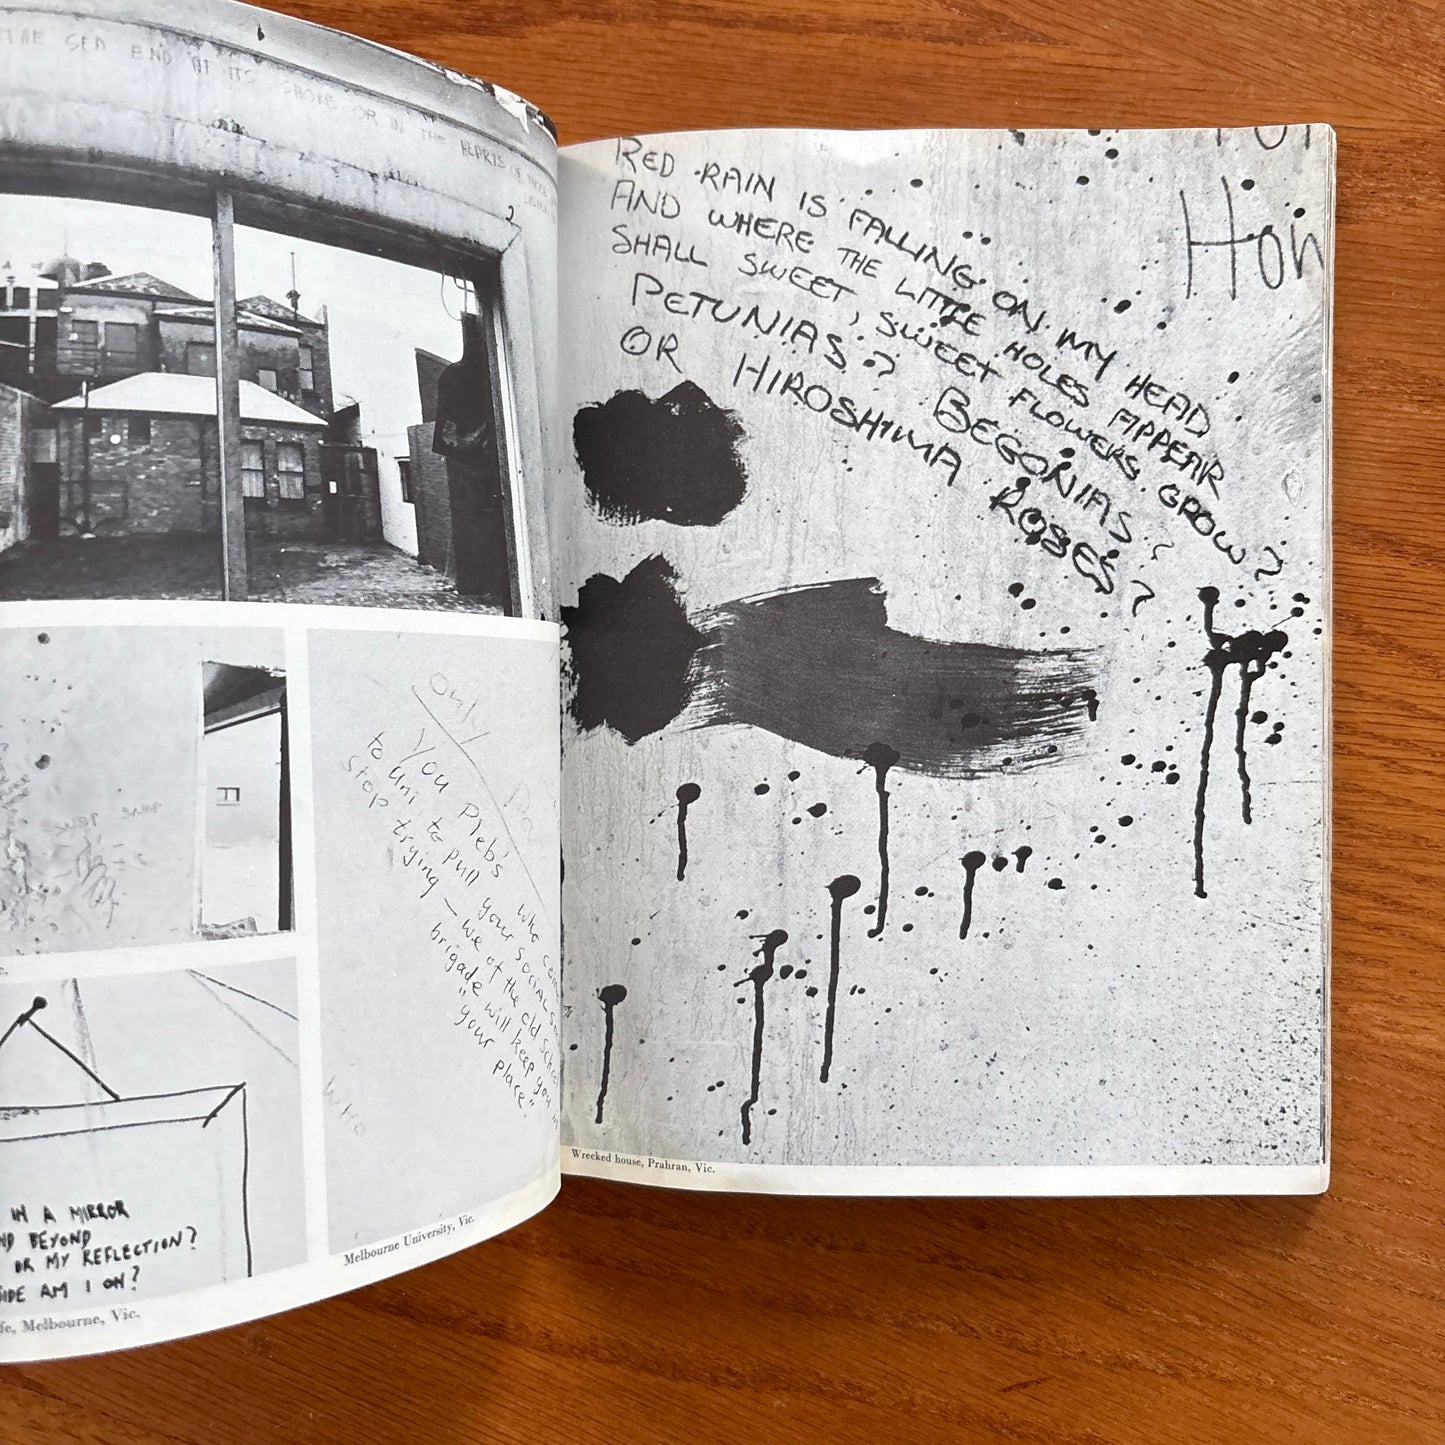 SEA END AT ITS SHORE OR IN THE HEARTS OF
2
only
You Pleb's who
to uni to pull your social
stop trying – we of the old school
brigade will keep you in
"your place"
who
Melbourne University, Vic.
IN A MIRROR
BEYOND
OR MY REFLECTION?
AM I ON?
Melbourne, Vic.
RED RAIN IS FALLING ON MY HEAD
AND WHERE THE LITTLE HOLES APPEAR
SHALL SWEET, SWEET FLOWERS GROW?
PETUNIAS? BEGONIAS?
OR HIROSHIMA ROSES?
Hon
Wrecked house, Prahran, Vic.